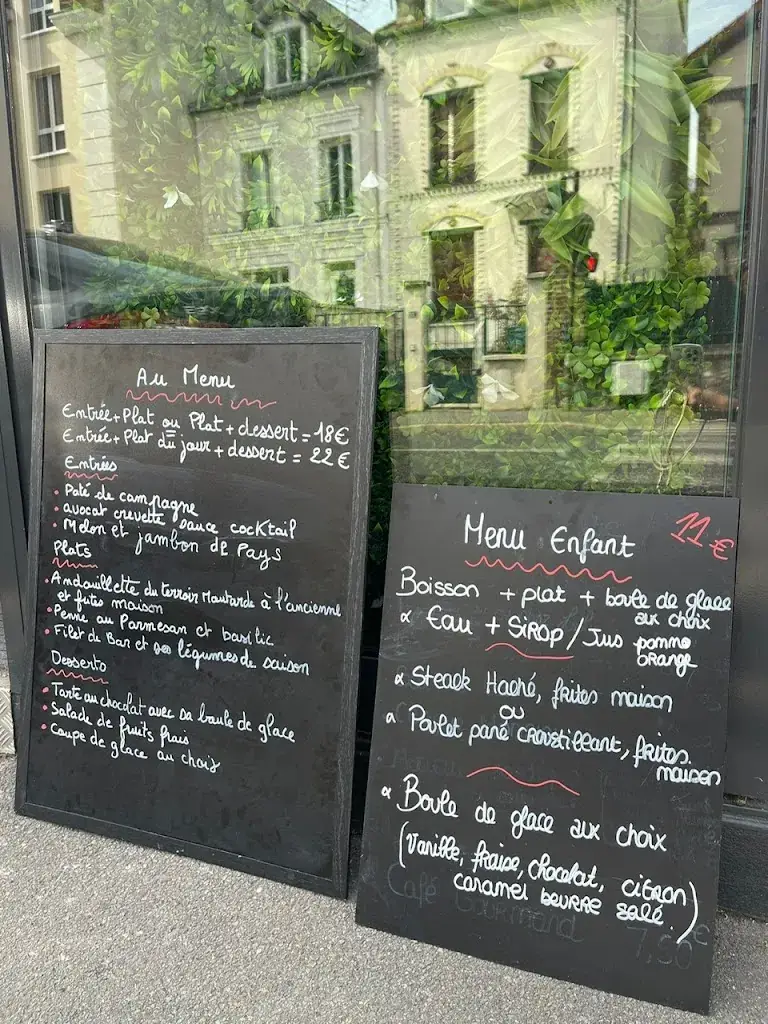 Au Menu
Entrée+Plat ou Plat+dessert=18€
Entrée+Plat du jour+dessert = 22€
Entrées
• Paté de campagne
• avocat crevette sauce cocktail
• Melon et jambon de Pays
Plats
• Andouillette du terroir Moutarde à l'ancienne
et frites maison
• Penne au Parmesan et basilic
• Filet de Bar et ses légumes de saison
Desserts
• Tarte au chocolat avec sa boule de glace
• Salade de fruits frais
• Coupe de glace au choix
Menu Enfant 11€
Boisson + plat + boule de glace
aux choix
Eau + SiROP / Jus pomme
orange
Steack Haché, frites maison
ou
Poulet pané croustillant, frites
maison
Boule de glace aux choix
(Vanille, fraise, chocolat, citron
caramel beurre salé.)
Café Gourmand
7,50€